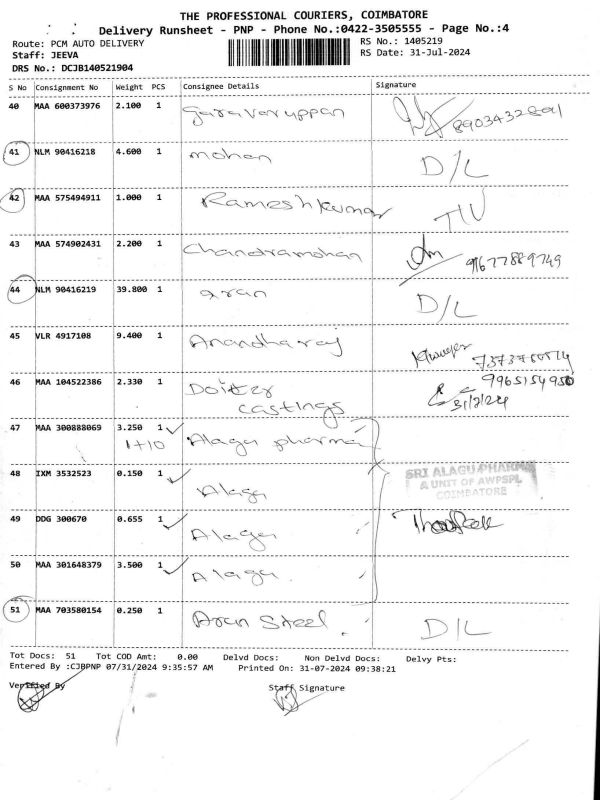 THE PROFESSIONAL COURIERS, COIMBATORE
Delivery Runsheet - PNP - Phone No.:0422-3505555 - Page No.:4
Route: PCM AUTO DELIVERY RS No.: 1405219
Staff: JEEVA RS Date: 31-Jul-2024
DRS No.: DCJB140521904
S No Consignment No Weight PCS Consignee Details Signature
40 MAA 600373976 2.100 1
41 NLM 90416218 4.600 1 mohan D/L
42 MAA 575494911 1.000 1 Rameshkumar
43 MAA 574902431 2.200 1 Chandramohan 91677889749
44 NLM 90416219 39.800 1 D/L
45 VLR 4917108 9.400 1 Anandharaj
46 MAA 104522386 2.330 1 9965154950
castings 31/7/24
47 MAA 300888069 3.250 1 Alagu pharma
1+10
48 IXM 3532523 0.150 1 Alagu
SRI ALAGU PHARMA
A UNIT OF AWPSPL
COIMBATORE
49 DDG 300670 0.655 1 Alagu
50 MAA 301648379 3.500 1 Alagu
51 MAA 703580154 0.250 1 Aran Steel D/L
Tot Docs: 51 Tot COD Amt: 0.00 Delvd Docs: Non Delvd Docs: Delvy Pts:
Entered By :CJBPNP 07/31/2024 9:35:57 AM Printed On: 31-07-2024 09:38:21
Verified By Staff Signature